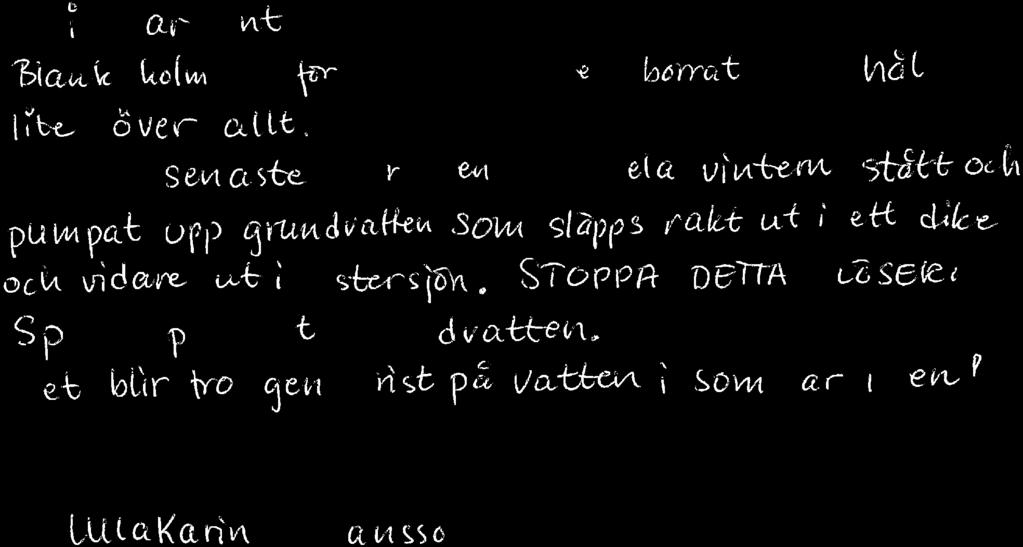 i ar nt
holm för e borrat hål
lite över allt.
senaste r en ela vintern stått och
pumpat upp grundvatten som släpps rakt ut i ett dike
och vidare ut i stersjön. STOPPA DETTA
Sp p t dvatten.
et blir tro gen rist på vatten i som ar
Karin ansso